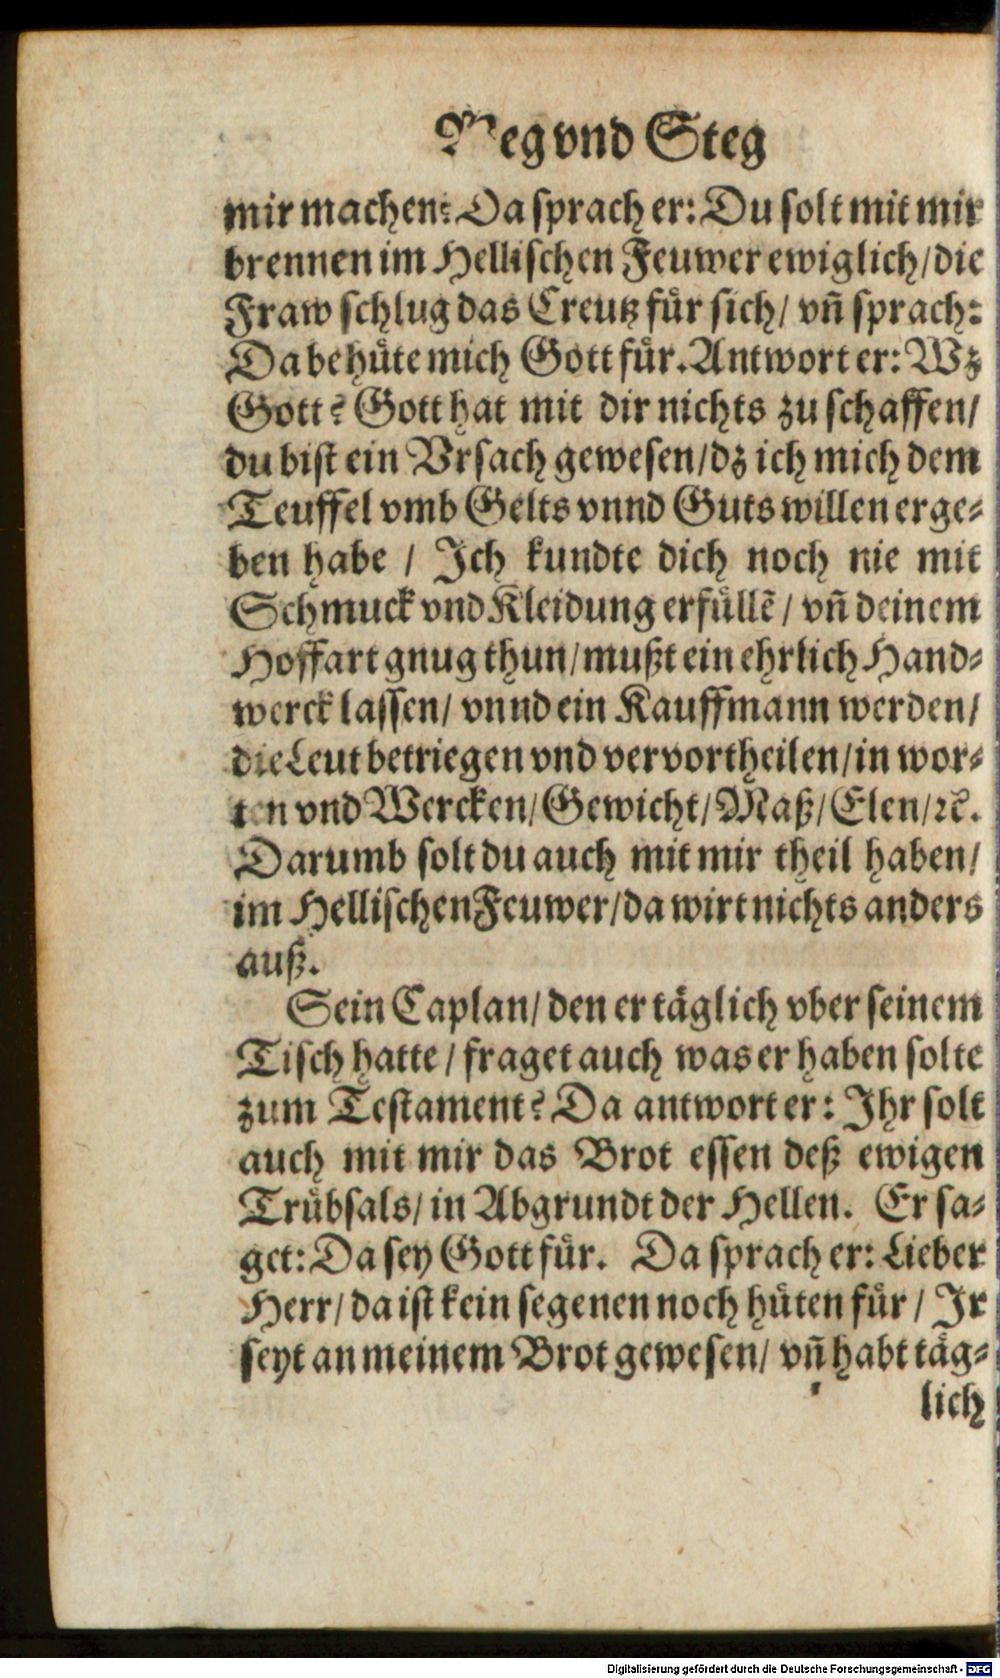 Weg vnd Steg
mir machen? Da sprach er: Du solt mit mir
brennen im Hellischen Feuwer ewiglich/ die
Fraw schlug das Creutz fuͤr sich/ vñ sprach:
Da behuͤte mich Gott fuͤr. Antwort er: Wz
Gott? Gott hat mit dir nichts zu schaffen/
du bist ein Vrsach gewesen/ dz ich mich dem
Teuffel vmb Gelts vnnd Guts willen erge-
ben habe / Ich kundte dich noch nie mit
Schmuck vnd Kleidung erfuͤllẽ / vñ deinem
Hoffart gnug thun/ mußt ein ehrlich Hand-
werck lassen/ vnnd ein Kauffmann werden/
die Leut betriegen vnd vervortheilen/ in wor-
ten vnd Wercken/ Gewicht/ Maß/ Elen/ ꝛc.
Darumb solt du auch mit mir theil haben/
im Hellischen Feuwer/ da wirt nichts anders
auß.
Sein Caplan/ den er taͤglich vber seinem
Tisch hatte / fraget auch was er haben solte
zum Testament? Da antwort er: Ihr solt
auch mit mir das Brot essen deß ewigen
Truͤbsals/ in Abgrundt der Hellen. Er sa-
get: Da sey Gott fuͤr. Da sprach er: Lieber
Herr/ da ist kein segenen noch huͤten fuͤr / Ir
seyt an meinem Brot gewesen/ vñ habt taͤg-
lich
Digitalisierung gefördert durch die Deutsche Forschungsgemeinschaft - DFG